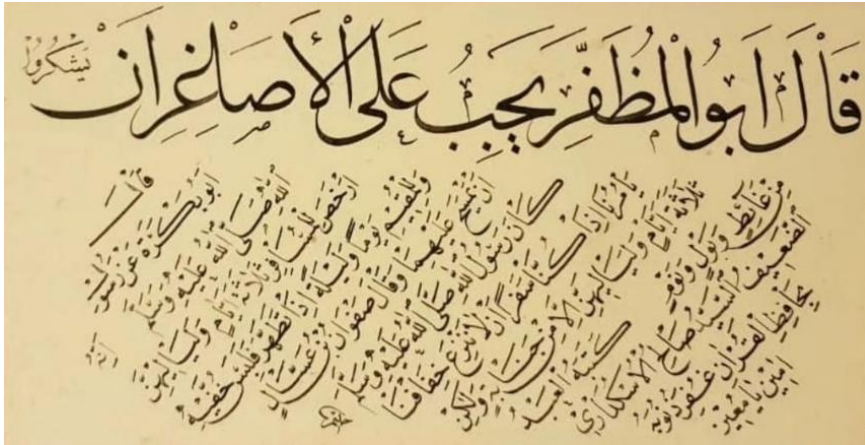 قَالَ اَبُو الْمُظَفَّرِ يَجِبُ عَلَى الْأَصَاغِرِ اَنْ يَشْكُرُوا
قال
ابو بكرة عن رسول
الله صلى الله عليه وسلم
ارخص للمسافر ثلاثة ايام ولياليهن
وللمقيم يوما وليلة اذا تطهر فلبس خفيه
ان يمسح عليهما وقال صفوان بن عسال
كان رسول الله صلى الله عليه وسلم
يأمرنا اذا كنا سفرا ان لا ننزع خفافنا
ثلاثة ايام ولياليهن الا من جنابة ولكن
من غائط وبول ونوم كتبه العبد
الضعيف السيد صالح الاسكداري
بحافظ القرآن غفر ذنوبه
امين يا معين